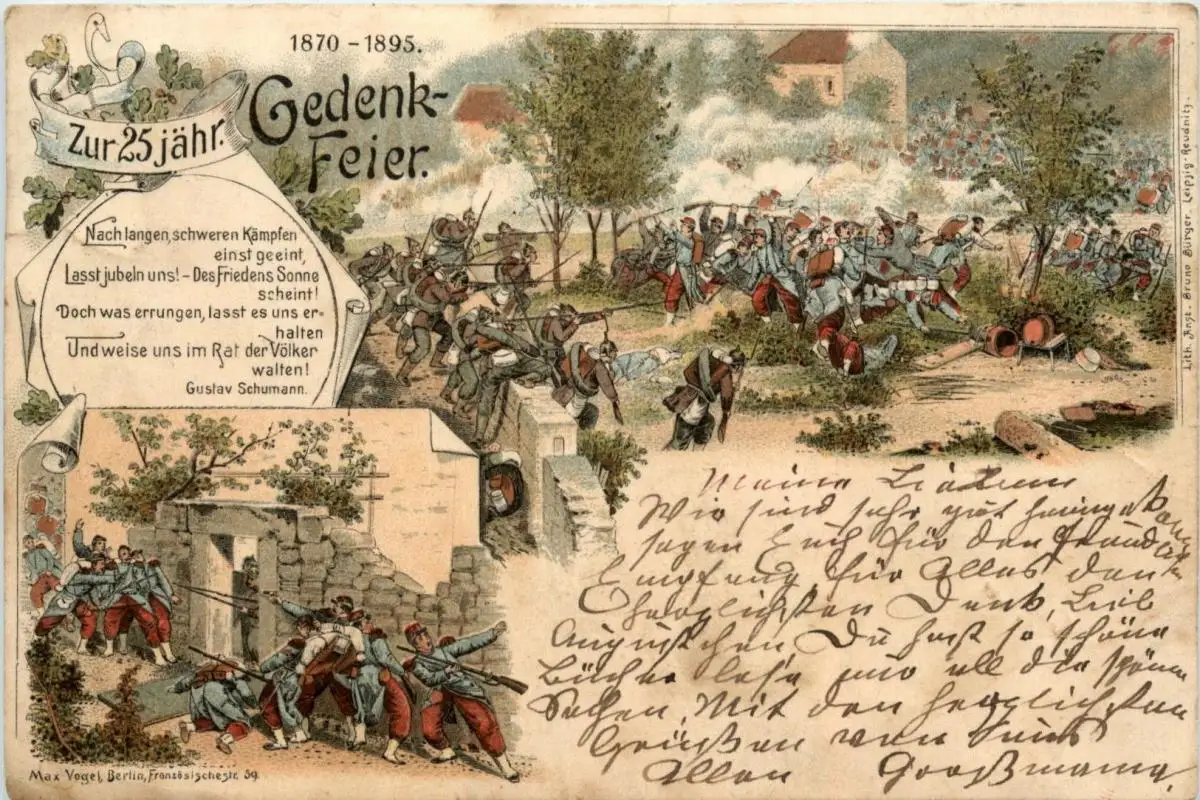 1870 - 1895.
Zur 25 jähr.
Gedenk-
Feier.
Nach langen, schweren Kämpfen
einst geeint,
Lasst jubeln uns! - Des Friedens Sonne
scheint!
Doch was errungen, lasst es uns er-
halten
Und weise uns im Rat der Völker
walten!
Gustav Schumann.
Lith. Anst. Bruno Bürger Leipzig-Reudnitz.
Max Vogel, Berlin, Französischestr. 59.
Meine Lieben
Wir sind sehr gut
sagen Euch für den
Empfang, für Alles den
herzlichsten Dank, Lieb
Augustchen, Du hast so schöne
Bücher und all die schönen
Sachen. Mit den herzlichsten
Grüßen von
Allen Großmama,